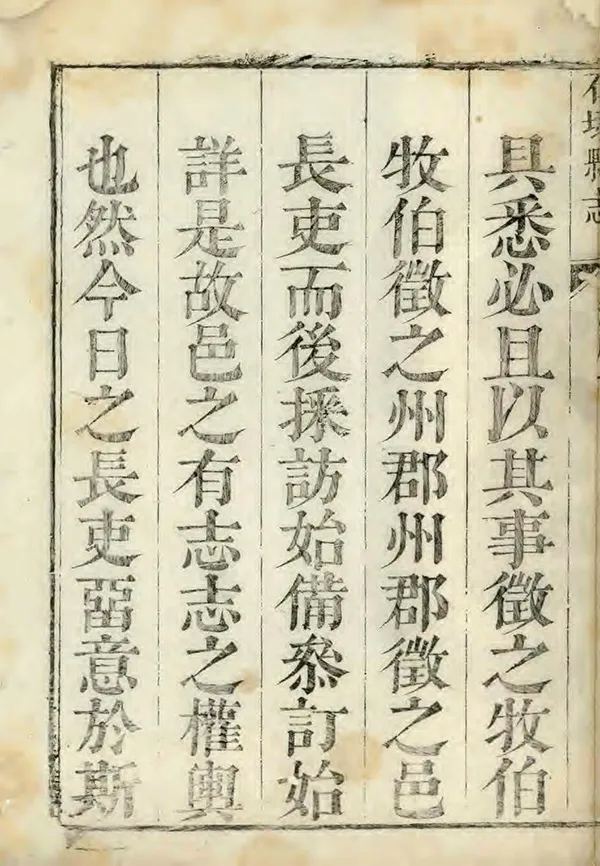 縣志
具悉必且以其事徵之牧伯
牧伯徵之州郡州郡徵之邑
長吏而後採訪始備叅訂始
詳是故邑之有志志之權輿
也然今日之長吏畱意於斯